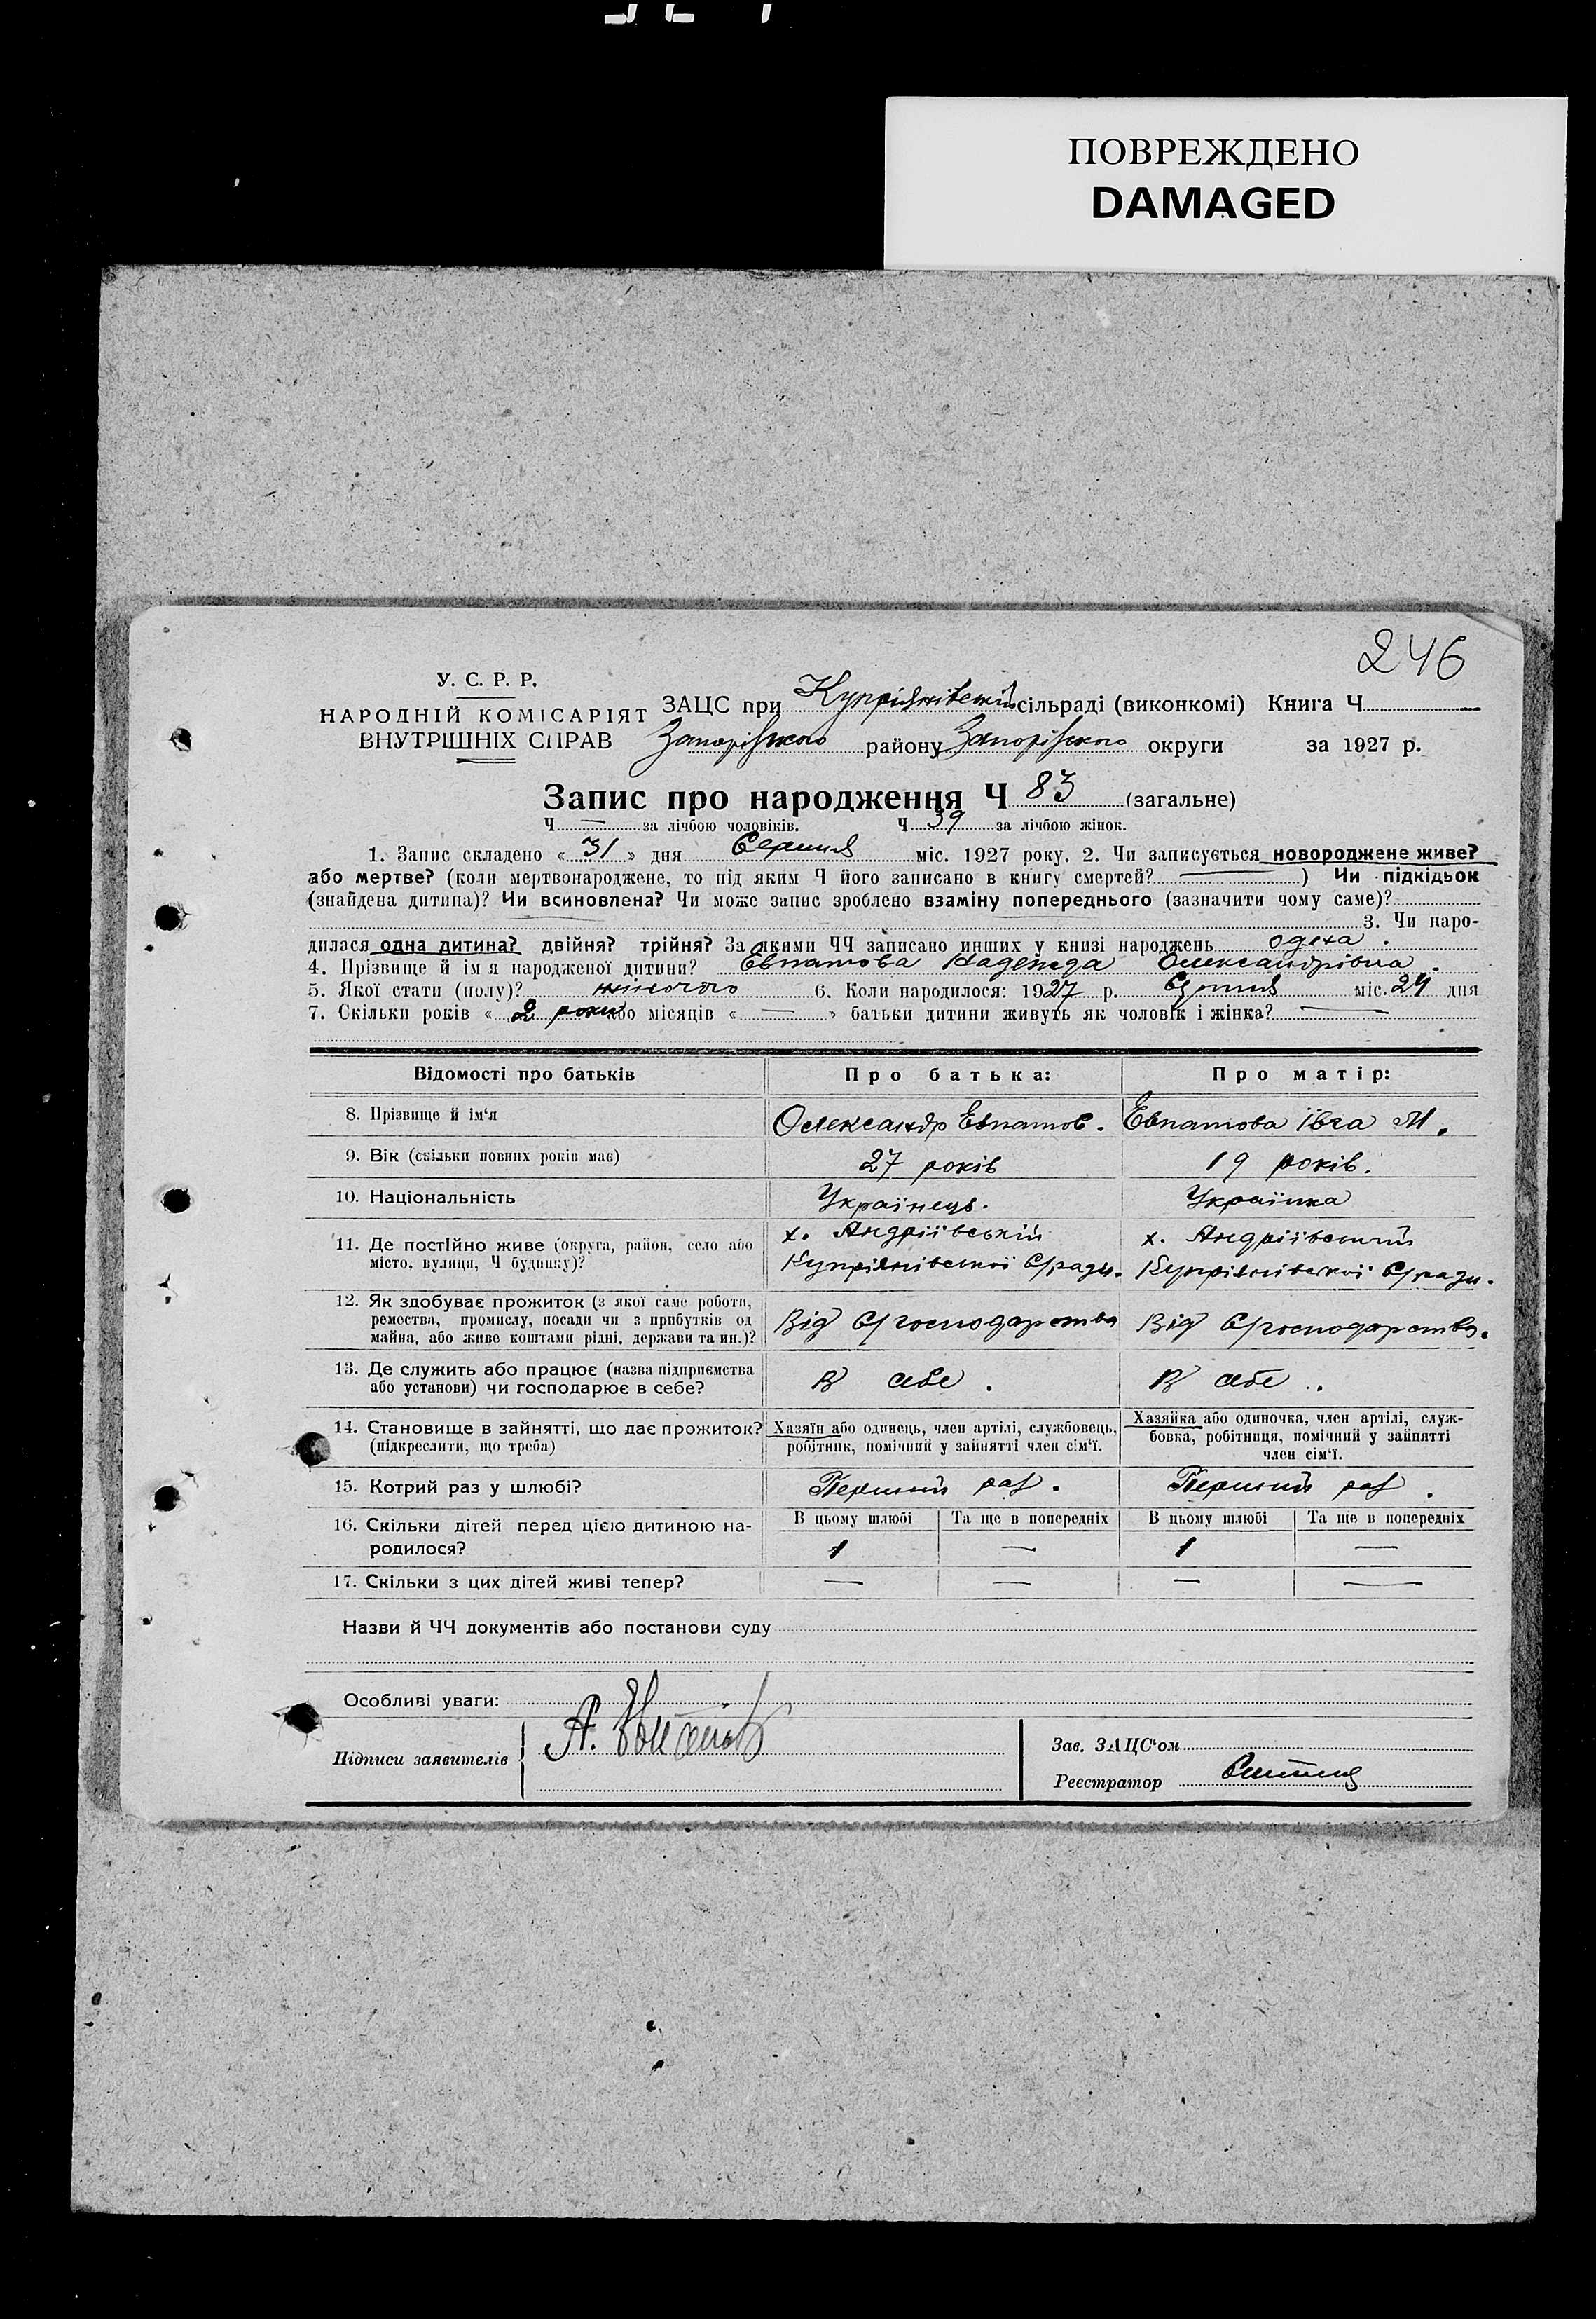 ПОВРЕЖДЕНО
DAMAGED
246
У. С. Р. Р.
НАРОДНІЙ КОМІСАРІЯТ
ВНУТРІШНІХ СПРАВ
ЗАЦС при Купріянівській сільраді (виконкомі) Книга Ч
Запорізького району Запорізького округи за 1927 р.
Запис про народження Ч 83 (загальне)
Ч — за лічбою чоловіків. Ч 39 за лічбою жінок.
1. Запис складено « 31 » дня Серпня міс. 1927 року. 2. Чи записується новороджене живе?
або мертве? (коли мертвонароджене, то під яким Ч його записано в книгу смертей? — ) Чи підкідьок
(знайдена дитина)? Чи всиновлена? Чи може запис зроблено взаміну попереднього (зазначити чому саме)?
3. Чи наро-
дилася одна дитина? двійня? трійня? За якими ЧЧ записано инших у книзі народжень одена.
4. Прізвище й ім'я народженої дитини? Евпатова Надежда Олександрівна.
5. Якої стати (полу)? жіночого 6. Коли народилося: 1927 р. Серпня міс. 24 дня
7. Скільки років « 2 роки або місяців « — » батьки дитини живуть як чоловік і жінка? —
Відомості про батьків
Про батька:
Про матір:
8. Прізвище й ім'я
Олександр Евпатов.
Евпатова Івга М.
9. Вік (скільки повних років має)
27 років
19 років.
10. Національність
Українець.
Українка
11. Де постійно живе (округа, район, село або
місто, вулиця, Ч будинку)?
х. Андріївській
Купріянівської С/ради.
х. Андріївський
Купріянівської С/ради.
12. Як здобуває прожиток (з якої саме роботи,
ремества, промислу, посади чи з прибутків од
майна, або живе коштами рідні, держави та ин.)?
Від С/господарства
Від С/господарства.
13. Де служить або працює (назва підприємства
або установи) чи господарює в себе?
В себе.
В себе.
14. Становище в зайнятті, що дає прожиток?
(підкреслити, що треба)
Хазяїн або одинець, член артілі, службовець,
робітник, помічний у зайнятті член сім'ї.
Хазяйка або одиночка, член артілі, служ-
бовка, робітниця, помічний у зайнятті
член сім'ї.
15. Котрий раз у шлюбі?
Перший раз.
Перший раз.
16. Скільки дітей перед цією дитиною на-
родилося?
В цьому шлюбі Та ще в попередніх В цьому шлюбі Та ще в попередніх
1 — 1 —
17. Скільки з цих дітей живі тепер?
— — — —
Назви й ЧЧ документів або постанови суду
Особливі уваги:
Підписи заявителів
А. Евпатов
Зав. ЗАЦС'ом
Реєстратор